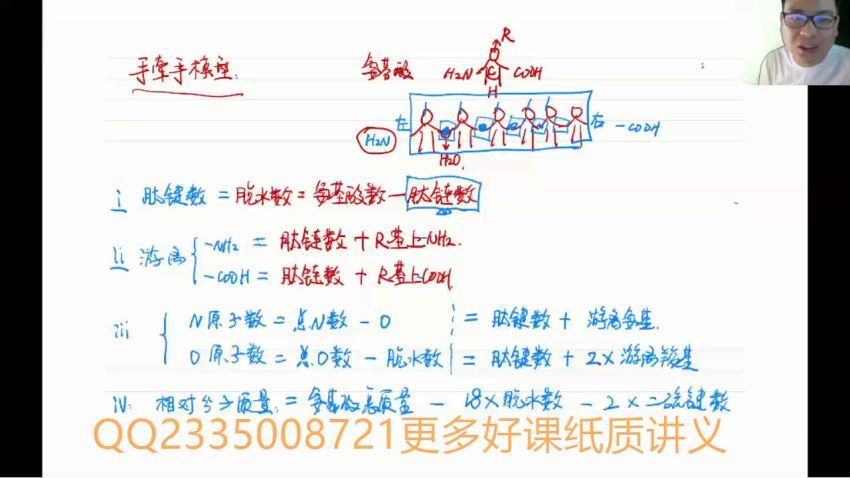 手牵手模型.
氨基酸 R
H2N C COOH
H
左 右 -COOH
H2N
H2O.
i 肽键数 = 脱水数 = 氨基酸数 - 肽链数
ii 游离 { -NH2 = 肽链数 + R基上-NH2.
-COOH = 肽链数 + R基上COOH
iii { N原子数 = 总N数 - 0 = 肽键数 + 游离氨基.
O原子数 = 总O数 - 脱水数 = 肽键数 + 2×游离羧基
iv: 相对分子质量: = 氨基酸总质量 - 18×脱水数 - 2×二硫键数
QQ2335008721更多好课纸质讲义